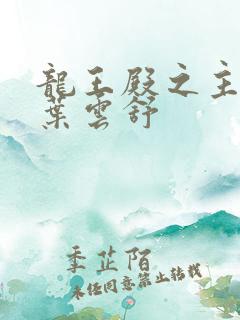 龍王殿之主
葉雲舒
季芷陌
未经同意禁止转载